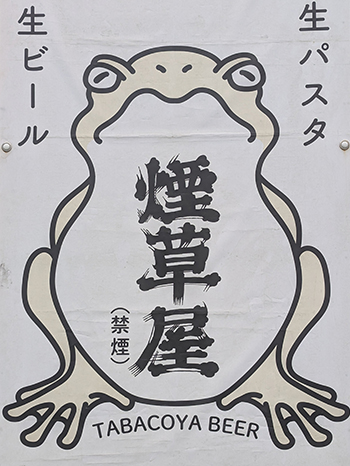 生パスタ
生ビール
煙草屋
(禁煙)
TABACOYA BEER